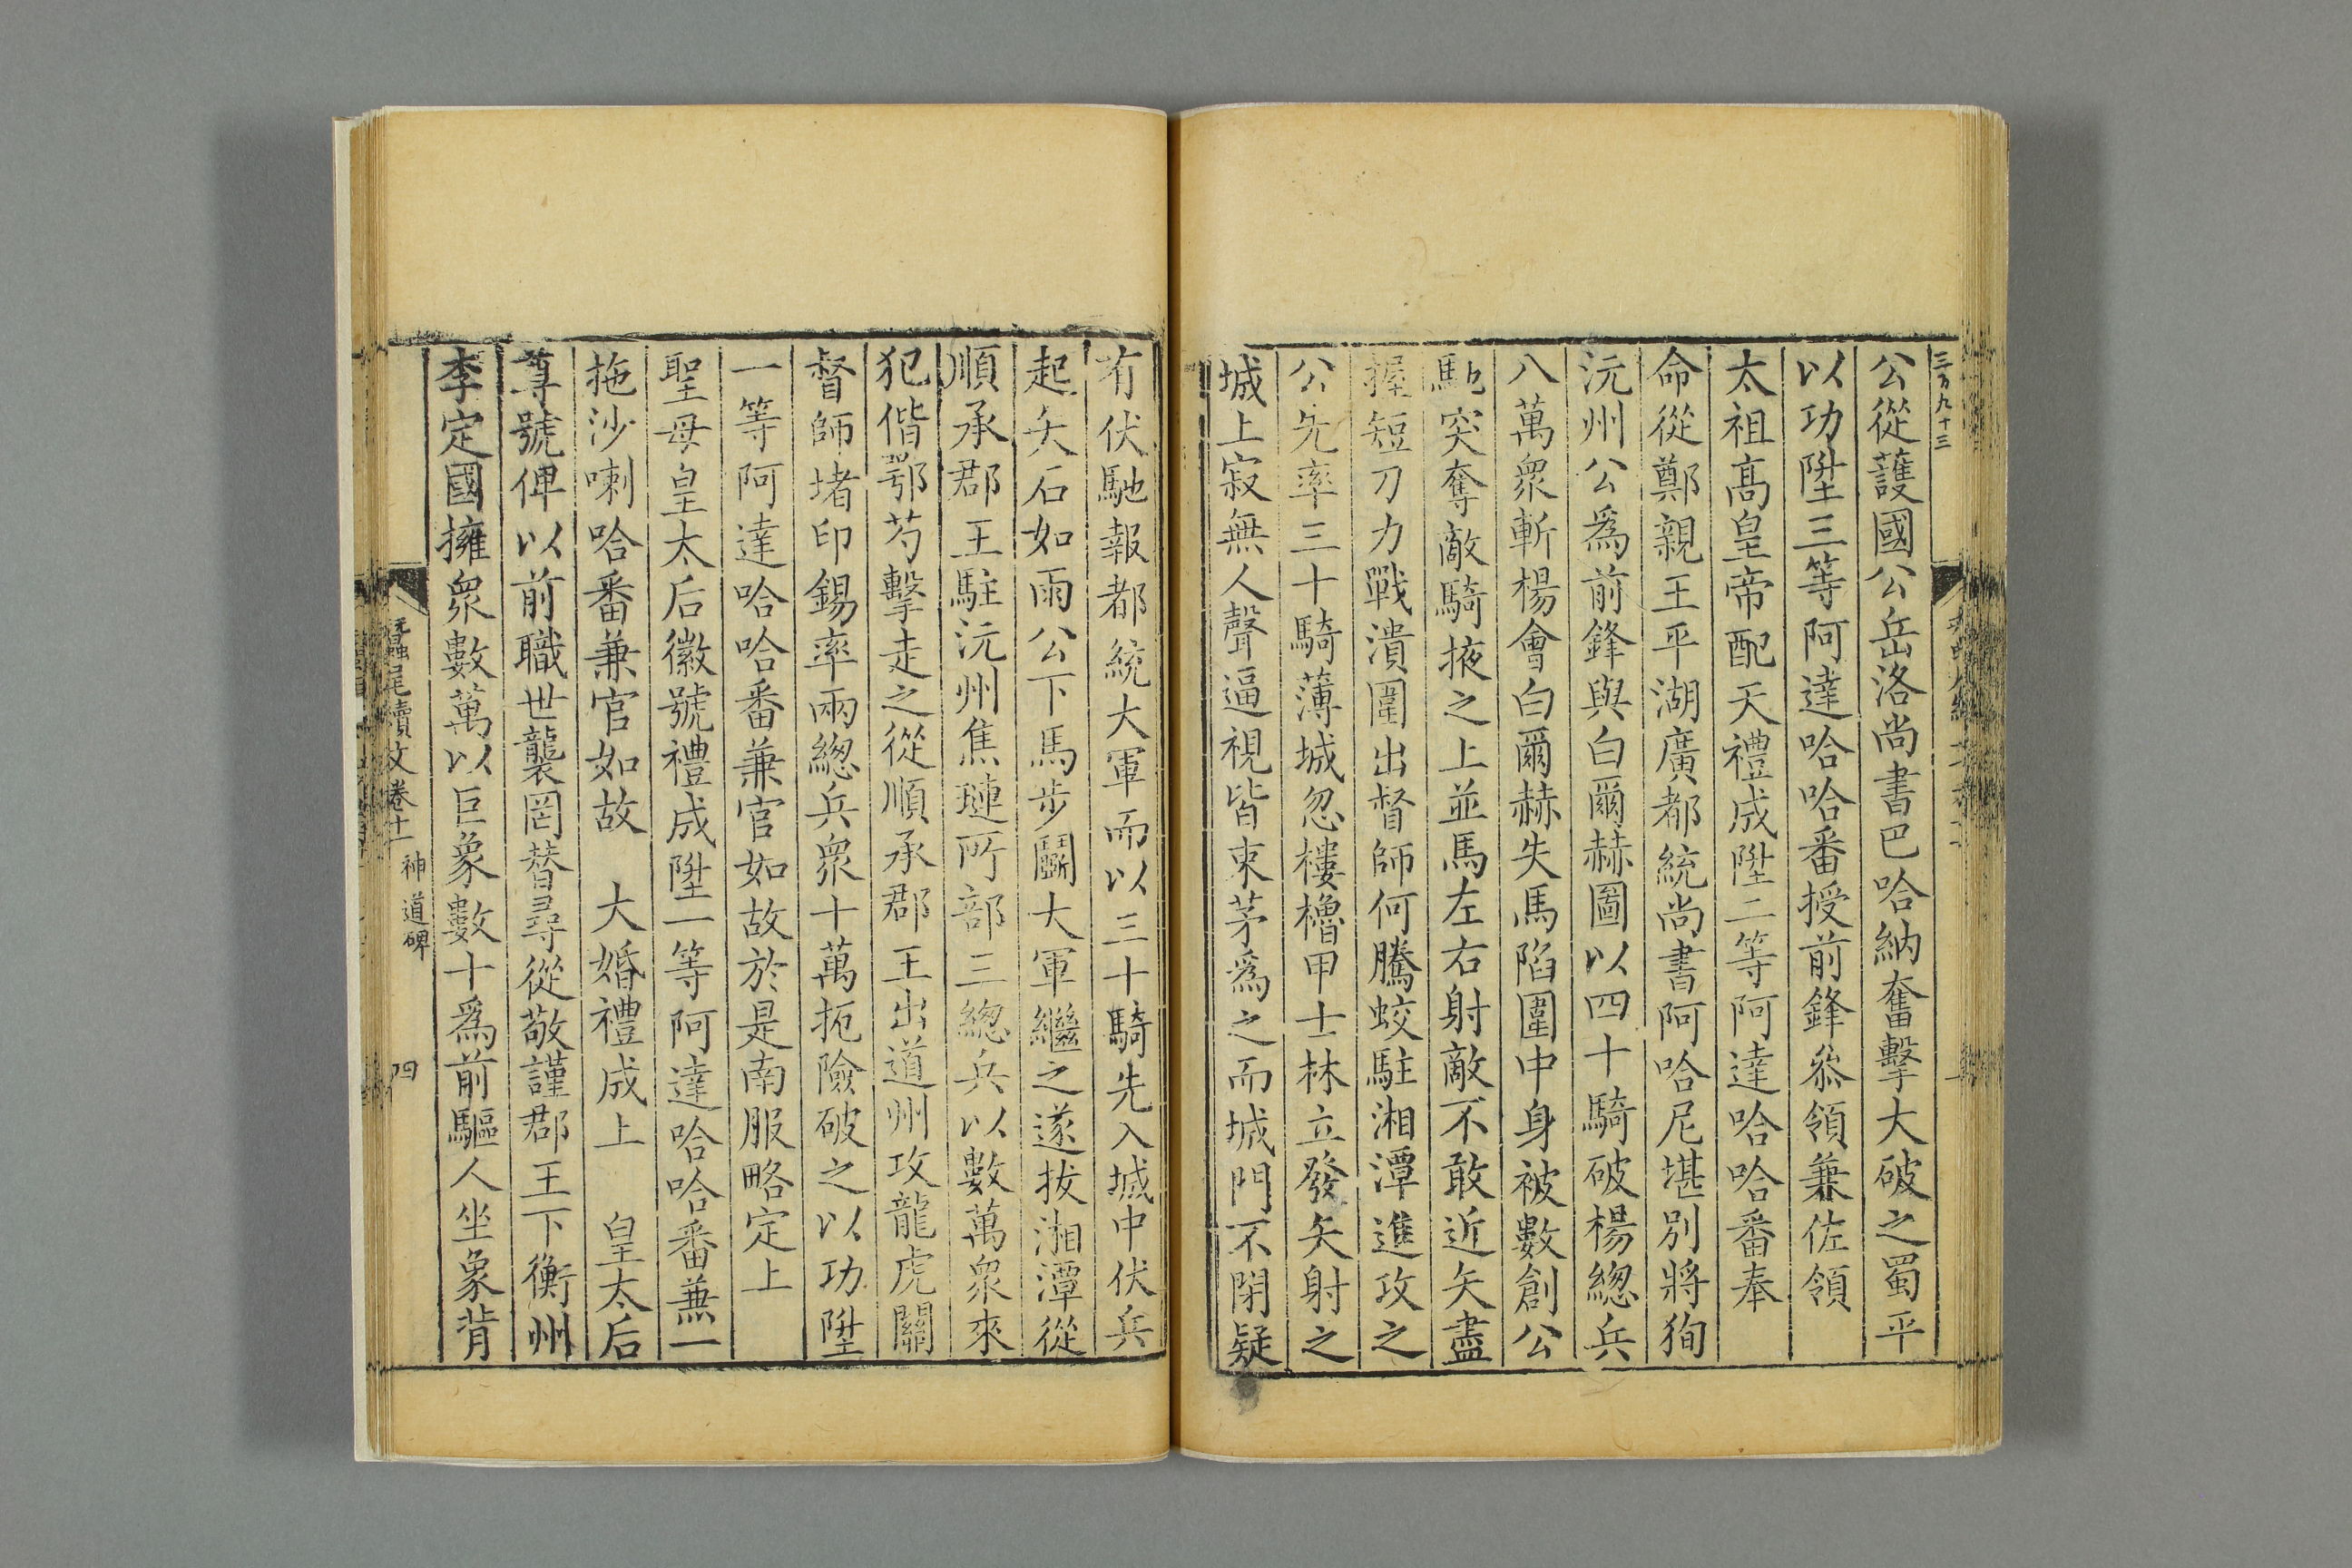 三百九十三
公從護國公岳洛尚書巴哈納奮擊大破之蜀平
以功陞三等阿達哈哈番授前鋒叅領兼佐領
太祖高皇帝配天禮成陞二等阿達哈哈番奉
命從鄭親王平湖廣都統尚書阿哈尼堪別將狥
沅州公爲前鋒與白爾赫圖以四十騎破楊總兵
八萬衆斬楊會白爾赫失馬陷圍中身被數創公
馳突奪敵騎掖之上並馬左右射敵不敢近矢盡
握短刀力戰潰圍出督師何騰蛟駐湘潭進攻之
公先率三十騎薄城忽樓櫓甲士林立發矢射之
城上寂無人聲逼視皆束茅爲之而城門不閉疑
有伏馳報都統大軍而以三十騎先入城中伏兵
起矢石如雨公下馬步鬬大軍繼之遂拔湘潭從
順承郡王駐沅州焦璉所部三總兵以數萬衆來
犯偕鄂芍擊走之從順承郡王出道州攻龍虎關
督師堵印錫率兩總兵衆十萬扼險破之以功陞
一等阿達哈哈番兼官如故於是南服略定上
聖母皇太后徽號禮成陞一等阿達哈哈番兼一
拖沙喇哈番兼官如故　大婚禮成上　皇太后
尊號俾以前職世襲罔替尋從敬謹郡王下衡州
李定國擁衆數萬以巨象數十爲前驅人坐象背
蠶尾續文卷十一　神道碑　四